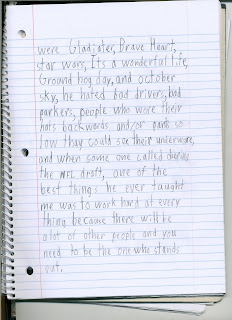 were Gladiater, Brave Heart,
star wars, Its a wonderful life,
Ground hog day, and october
sky, he hated bad drivers, bad
parkers, people who wore their
hats backwords and/or pants so
low thay could see their underwere,
and when some one called during
the NFL draft, one of the
best things he ever taught
me was to work hard at every
thing because there will be
alot of other people and you
need to be the one who stands
out.